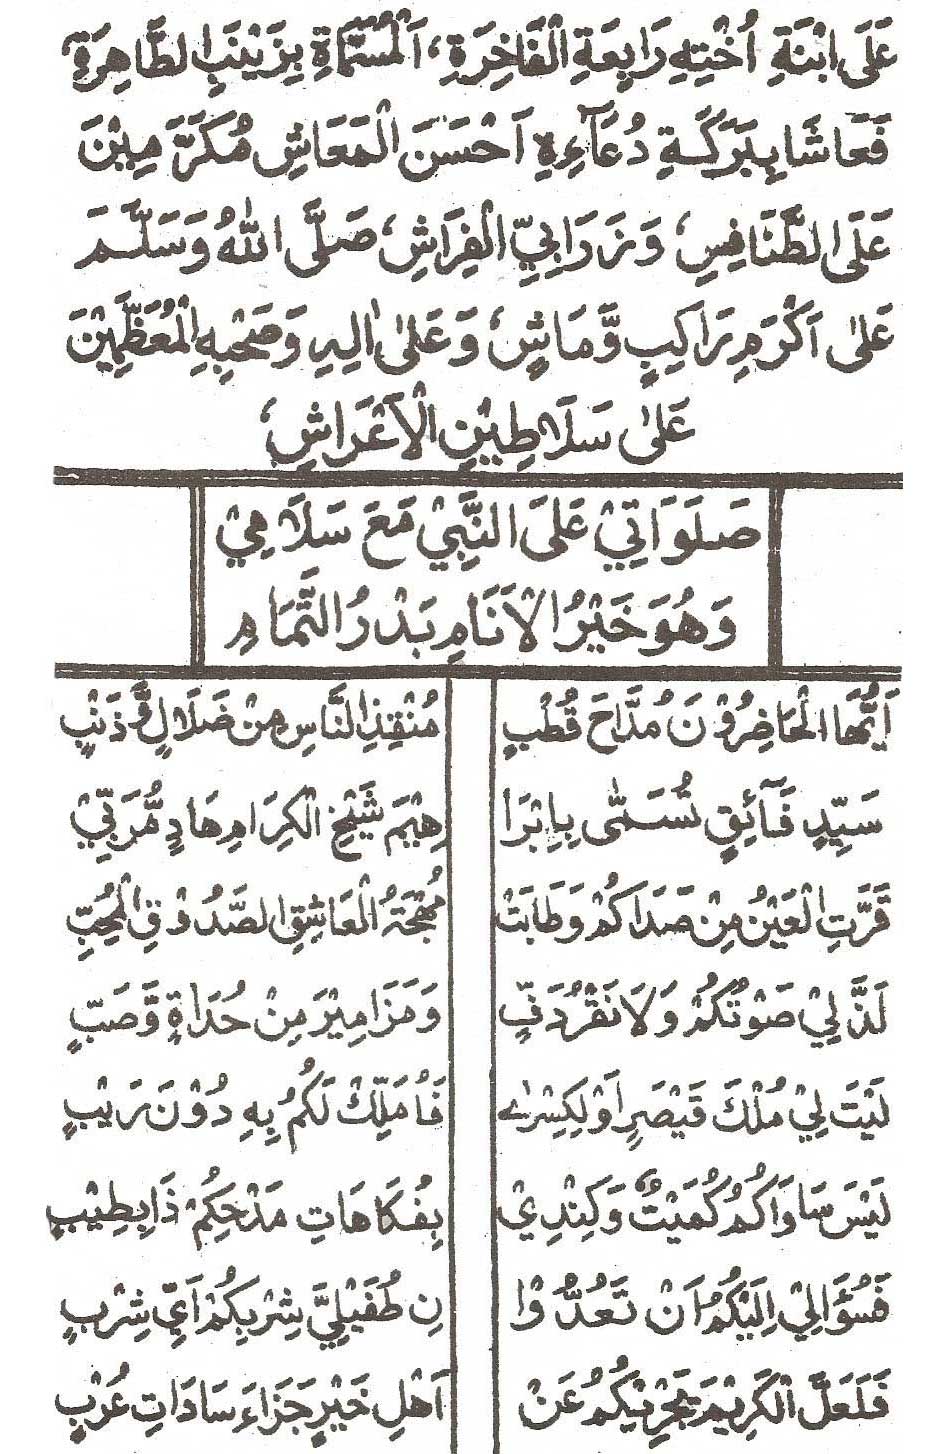 عَلَى ابْنَةِ اُخْتِهِ رَابِعَةِ الْفَاخِرَةِ، اَلْمُسَمَّاةِ بِزَيْنَبِ الطَّاهِرَةِ
فَعَاشَا بِبَرَكَةِ دُعَآءِهِ اَحْسَنَ الْمَعَاشِ مُكَرَّمِيْنَ
عَلَى الطَّنَافِسِ، وَزَرَابِيِّ الْفِرَاشِ، صَلَّى اللهُ وَسَلَّمَ
عَلٰى اَكْرَمِ رَاكِبٍ وَّمَاشٍ، وَعَلٰى اٰلِهِ وَصَحْبِهِ الْمُعَظَّمِيْنَ
عَلٰى سَلَاطِيْنِ الْاَعْرَاشِ،
صَلَوَاتِيْ عَلَى النَّبِيْ مَعَ سَلَامِيْ
وَهُوَ خَيْرُ الْاَنَامِ بَدْرُ التَّمَامِ
اَيُّهَا الْحَاضِرُوْنَ مُدَّاحَ قُطْبٍ مُنْقِذِ النَّاسِ مِنْ ضَلَالٍ وَّذَنْبٍ
سَيِّدٍ فَآئِقٍ تُسَمّٰى بِاِبْرَا هِيْمَ شَيْخِ الْكِرَامِ هَادٍ مُّرَبِّيْ
قَرَّتِ الْعَيْنُ مِنْ صَدَاكُمْ وَطَابَتْ مُهْجَةُ الْعَاشِقِ الصَّدُوْقِ الْمُحِبِّ
لَذَّ لِيْ صَوْتُكُمْ وَلَا نَقْرُ دَفٍّ وَمَزَامِيْرَ مِنْ حُدَاةٍ وَّصَبٍّ
لَيْتَ لِيْ مُلْكَ قَيْصَرٍ اَوْ لِكِسْرٰى فَاُمَلِّكْ لَكُمْ بِهِ دُوْنَ رَيْبٍ
لَيْسَ سَاوَاكُمُ كُمَيْتٌ وَكِنْدِيْ بِفُكَاهَاتِ مَدْحِكِمْ ذَا بِطِيْبٍ
فَسُؤَالِيْ اِلَيْكُمُ اَنْ تَعُدُّوْا نِ طُفَيْلِيَّ شِرْبِكُمْ اَيَّ شِرْبٍ
فَلَعَلَّ الْكَرِيْمَ يَجْزِيْكُمُ عَنْ اَهْلِ خَيْرٍ جَزَاءَ سَادَاتِ عُرْبٍ